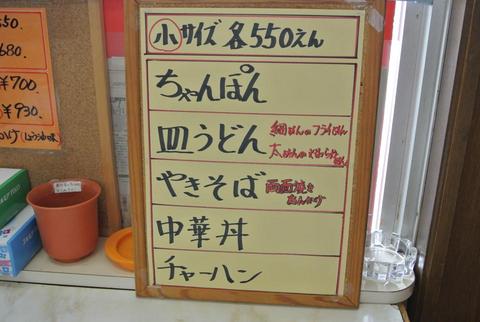 小サイズ 各550えん
ちゃんぽん
皿うどん
細めんのフライめん
太めんの
やきそば
両面焼き
あんかけ
中華丼
チャーハン
680.
¥700
¥930.
(しょうゆ味)